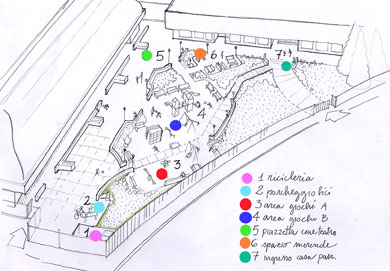 5
6
7
4
3
2
1
1 ricicleria
2 parcheggio bici
3 area giochi A
4 area giochi B
5 piazzetta
6 spazio merende
7 ingresso casa